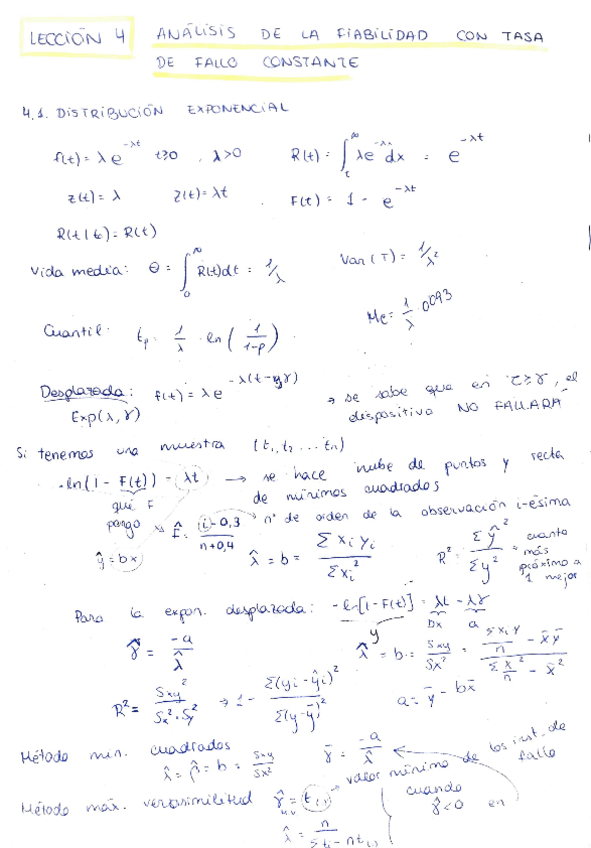 LECCIÓN 4 ANÁLISIS DE LA FIABILIDAD CON TASA
DE FALLO CONSTANTE
4.1. DISTRIBUCIÓN EXPONENCIAL
f(t) = λe^{-λt} t≥0, λ>0 R(t) = ∫_t^∞ λe^{-λx} dx = e^{-λt}
z(t) = λ Z(t) = λt F(t) = 1 - e^{-λt}
R(t|t₀) = R(t)
Vida media: Θ = ∫_0^∞ R(t)dt = 1/λ Var(T) = 1/λ²
Me = 1/λ · 0'693
Cuantil: t_p = 1/λ · ln(1/(1-p))
Desplazada: f(t) = λe^{-λ(t-γ)} → se sabe que en
Exp(λ,γ) , el dispositivo NO FALLARÁ
Si tenemos una muestra (t₁, t₂ ... tn)
-ln(1 - F(t)) = λt → se hace nube de puntos y recta
de mínimos cuadrados
qui F
pongo → F̂ = (i-0,3)/(n+0,4) → nº de orden de la observación i-ésima
ŷ = bx λ̂ = b = Σ xi yi / Σ xi² R² = Σ ŷ² / Σ y² = cuanto más próximo a 1 mejor
Para la expon. desplazada: -ln[1-F(t)] = λt - λγ
y bx a
γ̂ = -a/λ̂ λ̂ = b = Sxy/Sx² = (Σxiy/n - x̄ȳ)/(Σx²/n - x̄²)
R² = Sxy²/(Sx²·Sy²) → 1 - Σ(yi-ŷi)²/Σ(y-ȳ)² a = ȳ - bx̄
Método min. cuadrados λ̂ = β̂ = b = Sxy/Sx² γ̄ = -a/λ̂
Método máx. verosimilitud γ̂ = t₍₁₎ → valor mínimo de los inst. de fallo
cuando γ̂<0 en
λ̂ = n/(Σti - nt₍₁₎)